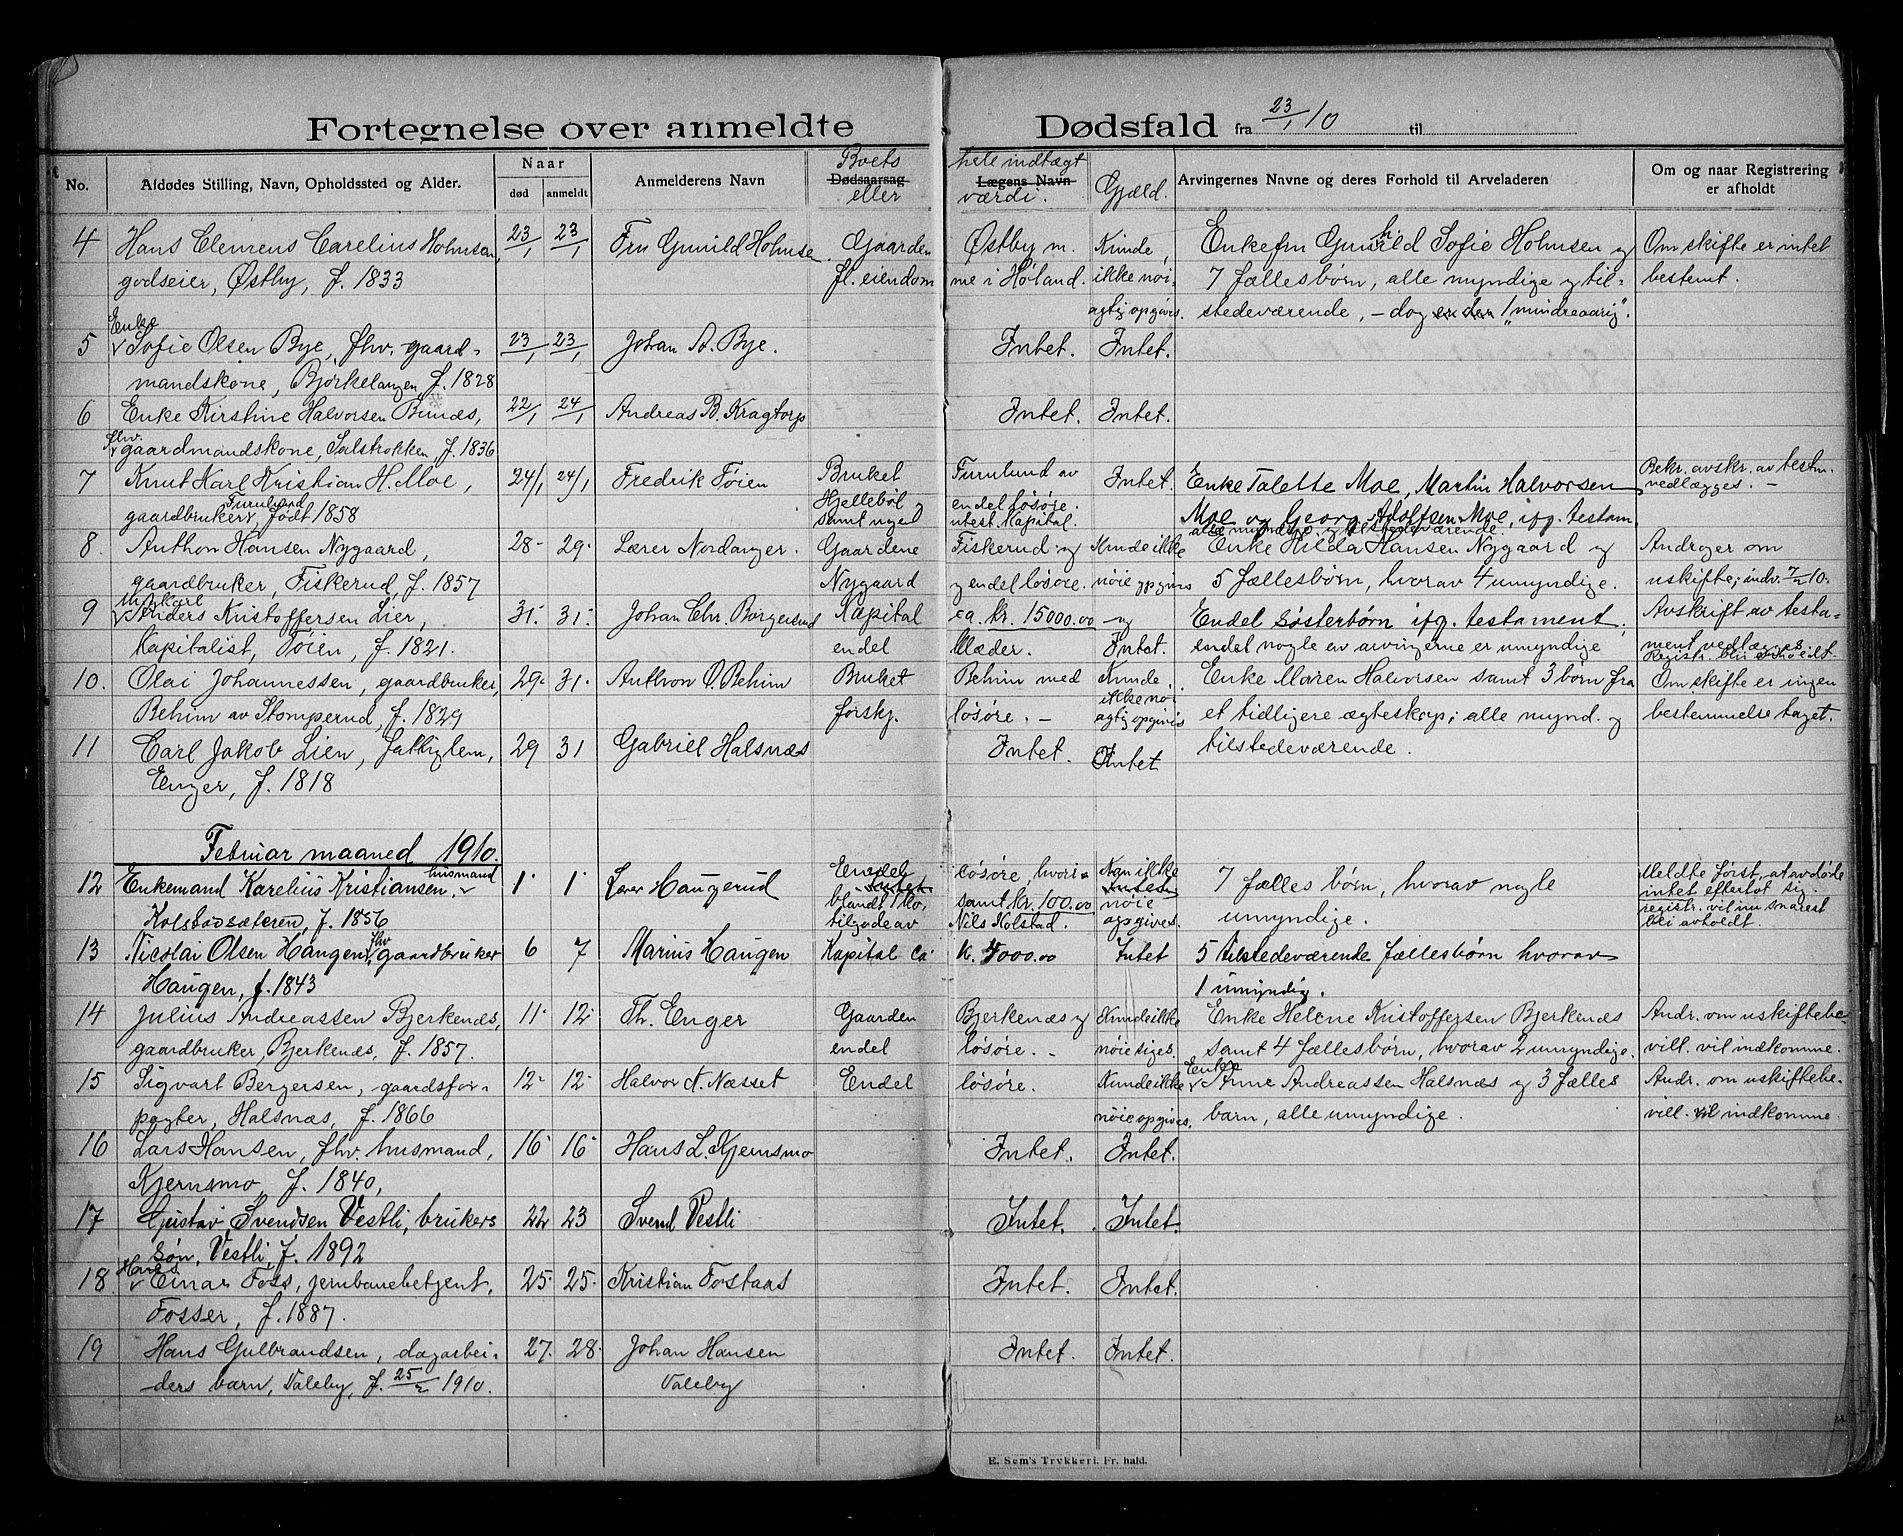 Fortegnelse over anmeldte Dødsfald fra 23/1 10 til
No. Afdødes Stilling, Navn, Opholdssted og Alder. Naar død anmeldt Anmelderens Navn Boets Dødsaarsag eller hele indtægt Lægens Navn værdi. Gjæld. Arvingernes Navne og deres Forhold til Arveladeren Om og naar Registrering er afholdt
4 Hans Clemens Carelius Holmsen, 23/1 23/1 Fru Gunild Holmsen. Gaarden Østby m. Kunde, Enkefru Gunhild Sofie Holmsen og Om skifte er intet
godseier, Østby, f. 1833 fl. eiendom me i Høland. ikke nøi- 7 fællesbørn, alle myndige og til- bestemt.
agtig opgives. stedeværende, - dog er den 1 "mindreaarig".
Enke
5 Sofie Olsen Bye, fhv. gaard- 23/1 23/1 Johan A. Bye. Intet. Intet.
mandskone, Bjørkelangen f. 1828
6 Enke Kirstine Halvorsen Bunes, 22/1 24/1 Andreas B. Kragtorp Intet. Intet.
fhv. gaardmandskone, Salstrokken, f. 1836
7 Knut Karl Kristian H. Moe, 24/1 24/1 Fredrik Tøien Bruket Furulund av Intet. Enke Talette Moe, Martin Halvorsen Bekr. avskr. av testm. vedlægges. -
gaardbruker, Furulund født 1858 Hjellebøl og samt noged endel løsøre. utest. Kapital. Moe og Georg Adolfsen Moe, ifg. testam.
alle myndige og tilstedeværende.
8 Anthon Hansen Nygaard, 28 29 Lærer Nordanger. Gaardene Fiskerud og Kunde ikke Enke Hilda Hansen Nygaard og Andrager om
gaardbruker, Fiskerud, f. 1857 Nygaard og endel løsøre. nøie opgives 5 fællesbørn, hvorav 4 umyndige. uskifte, indv. 7/2 10.
Ungkarl
9 Anders Kristoffersen Lier, 31 31 Johan Chr. Borgersrud Kapital ca. kr. 15000.00 og Endel søsterbørn ifg. testament, Avskrift av testa-
Kapitalist, Tøien, f. 1821. endel klæder. Intet. endel nogle av arvingerne er umyndige ment vedlægges.
10. Olai Johannessen, gaardbruker, 29 31 Anthon O. Behim Bruket Behim med Kunde. Enke Maren Halvorsen samt 3 børn fra Om skifte er ingen
Behim av Stomperud, f. 1829 forskj. løsøre. - ikke nøiagtig opgives et tidligere ægteskap; alle mynd. og bestemmelse taget.
11 Carl Jakob Lien, fattiglem, 29 31 Gabriel Halsnæs Intet. Intet tilstedeværende.
Enger, f. 1818
Februar maaned 1910.
12 Enkemand Karelius Kristiansen husmand 1 1 Lærer Haugerud Endel løsøre, hvori- Kan ikke 7 fælles børn, hvorav nogle Meldte først, at avdøde
Kolstadsæteren, f. 1856 blandt 1 ko, samt kr. 100.00 nøie umyndige. intet efterlot sig.
tilgode av Nils Kolstad. opgives. registr. vil nu snarest bli avholdt.
13 Nicolai Olsen Haugen fhv. gaardbruker 6 7 Marius Haugen Kapital ca. k. 4000.00 Intet 5 tilstedeværende fællesbørn hvorav
Haugen, f. 1843 1 umyndig.
14 Julius Andreassen Bjerkenæs, 11 12 Th. Enger Gaarden Bjerkenæs og Kunde ikke Enke Helene Kristoffersen Bjerkenæs Andr. om uskiftebe-
gaardbruker, Bjerkenæs, f. 1857. endel løsøre. - nøie siges. samt 4 fællesbørn, hvorav 2 umyndige. vill. vil indkomme.
15 Sigvart Bergersen, gaardsfor- 12 12 Halvor A. Næsset Endel løsøre. Kunde ikke Enke Anne Andreassen Halsnæs og 3 fælles Andr. om uskiftebe-
pagter, Halsnæs, f. 1866 nøie opgives. barn, alle umyndige. vill. vil indkomme.
16 Lars Hansen, fhv. husmand, 16 16 Hans L. Kjernsmo Intet. Intet.
Kjernsmo, f. 1840,
17 Gustav Svendsen Vestli, brukers 22 23 Svend Vestli Intet. Intet.
søn, Vestli, f. 1892
18 Hans Einar Foss, jernbanebetjent, 25 25 Kristian Fostaas Intet. Intet.
Fosser, f. 1887.
19 Hans Gulbrandsen, dagarbei- 27. 28 Johan Hansen Intet. Intet.
ders barn, Valeby, f. 25/2 1910. Valeby
E. Sem's Trykkeri, Fr. hald.